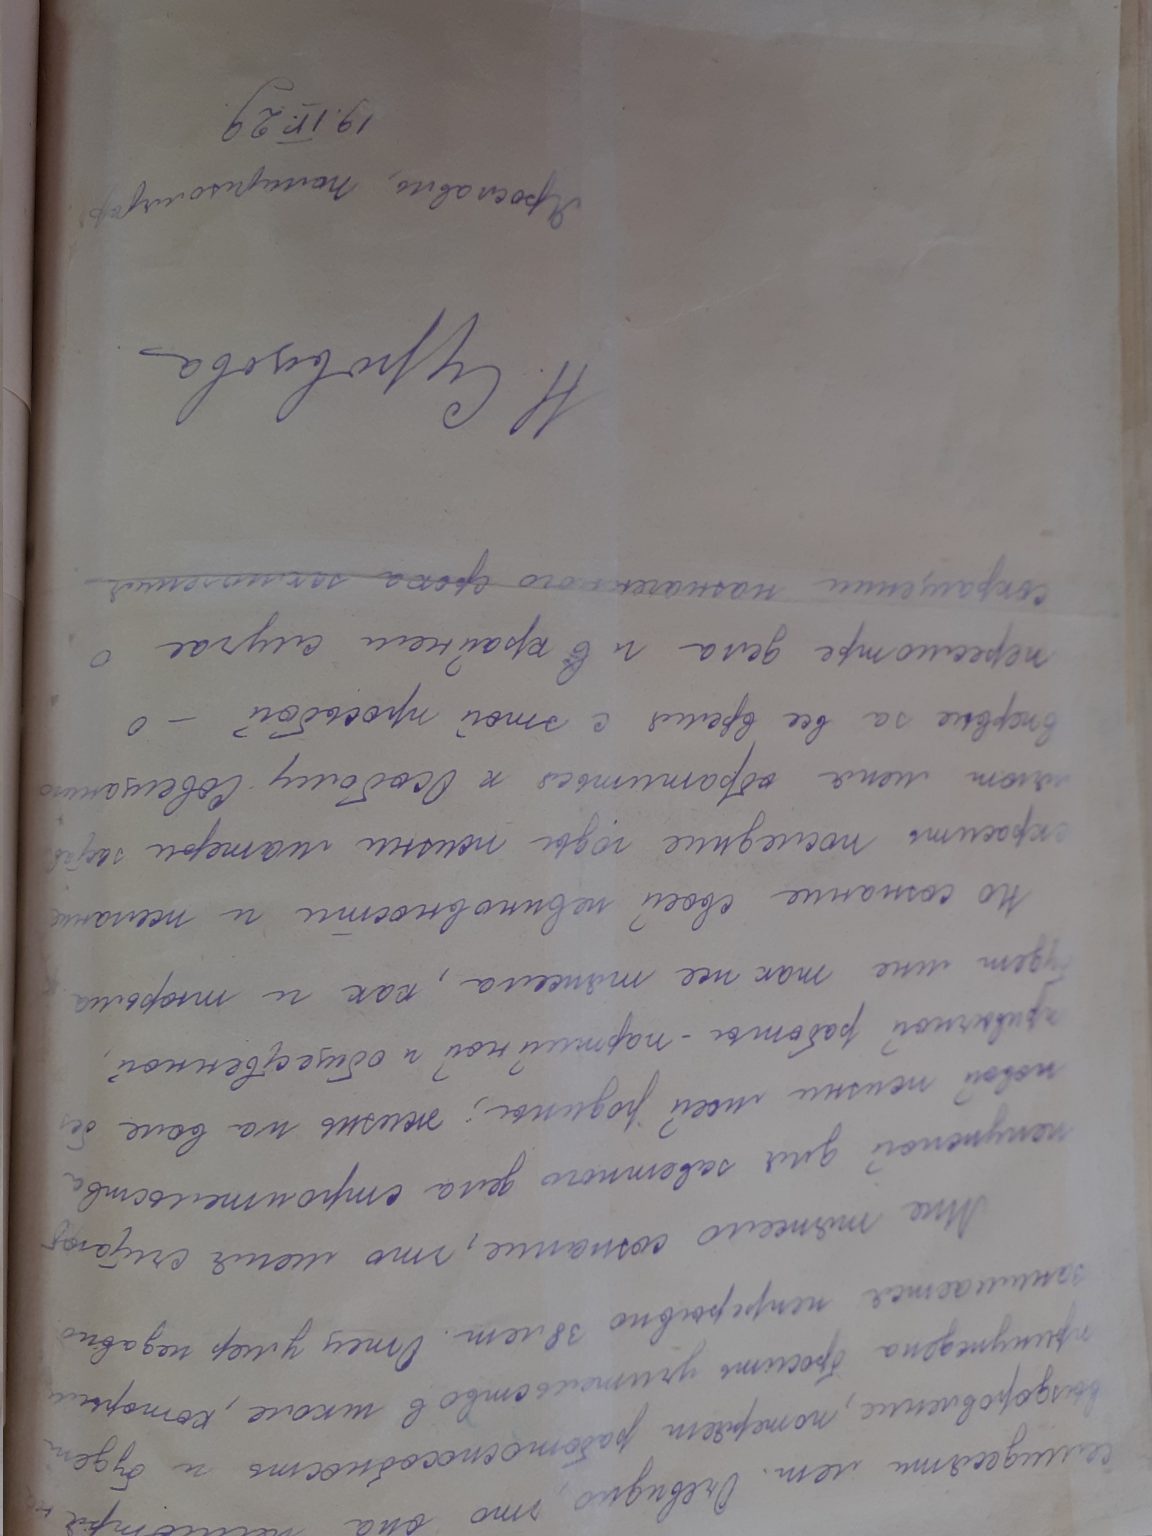 семидесяти лет. Очевидно, что она, несмотря на
выздоровление, потеряет работоспособность и будет
принуждена бросить учительство в школе, которым
занимается непрерывно 38 лет. Отец умер недавно
Мне тяжело сознание, что меня считают
ненужной для заветного дела строительства
новой жизни моей родины; жизнь на воле без
привычной работы - партийной и общественной,
будет мне так же тяжела, как и тюрьма
Но сознание своей невиновности и желание
скрасить последние годы жизни матери застав
ляют меня обратиться к Особому Совещанию
впервые за все время с этой просьбой - о
пересмотре дела и в крайнем случае о
сокращении назначенного срока заключения
Н. Суровцова
Ярославль, политизолятор
19.IV.29